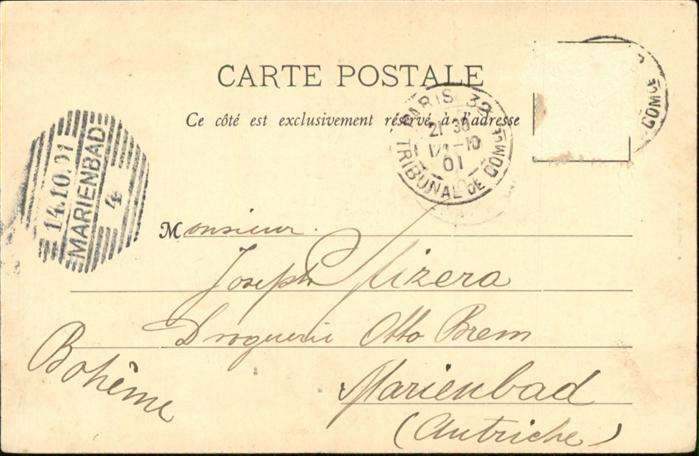 CARTE POSTALE
Ce côté est exclusivement réservé à l'adresse
PARIS 32
21 30
10
01
TRIBUNAL DE COM
COM
14.10.01
MARIENBAD
4
Monsieur
Joseph Mizera
Droguerie Otto Brem
Bohême
Marienbad
(Autriche)